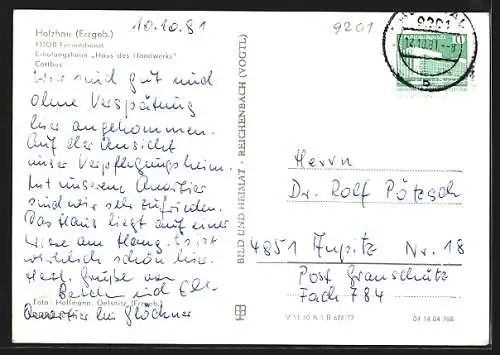 Holzhau (Erzgeb.)
FDGB Feriendienst
Erholungsheim „Haus des Handwerks"
Cottbus
10.10.81
9201
9201
12.10.81
b
10
Wir sind gut und
ohne Verspätung
hier angekommen.
Auf der Ansicht
unser Verpflegungsheim.
Mit unserem Quartier
sind wir sehr zufrieden.
Das Haus liegt auf einer
Wiese am Hang. Es ist
wirklich schön hier.
Herzl. Grüße von
und
Quartier bei Glöckner
Foto: Hoffmann, Oelsnitz (Erzgeb.)
BILD UND HEIMAT · REICHENBACH (VOGTL)
Herrn
Dr. Rolf Pötzsch
4851 Nr. 18
Post Granschütz
Fach 784
01 14 04 268